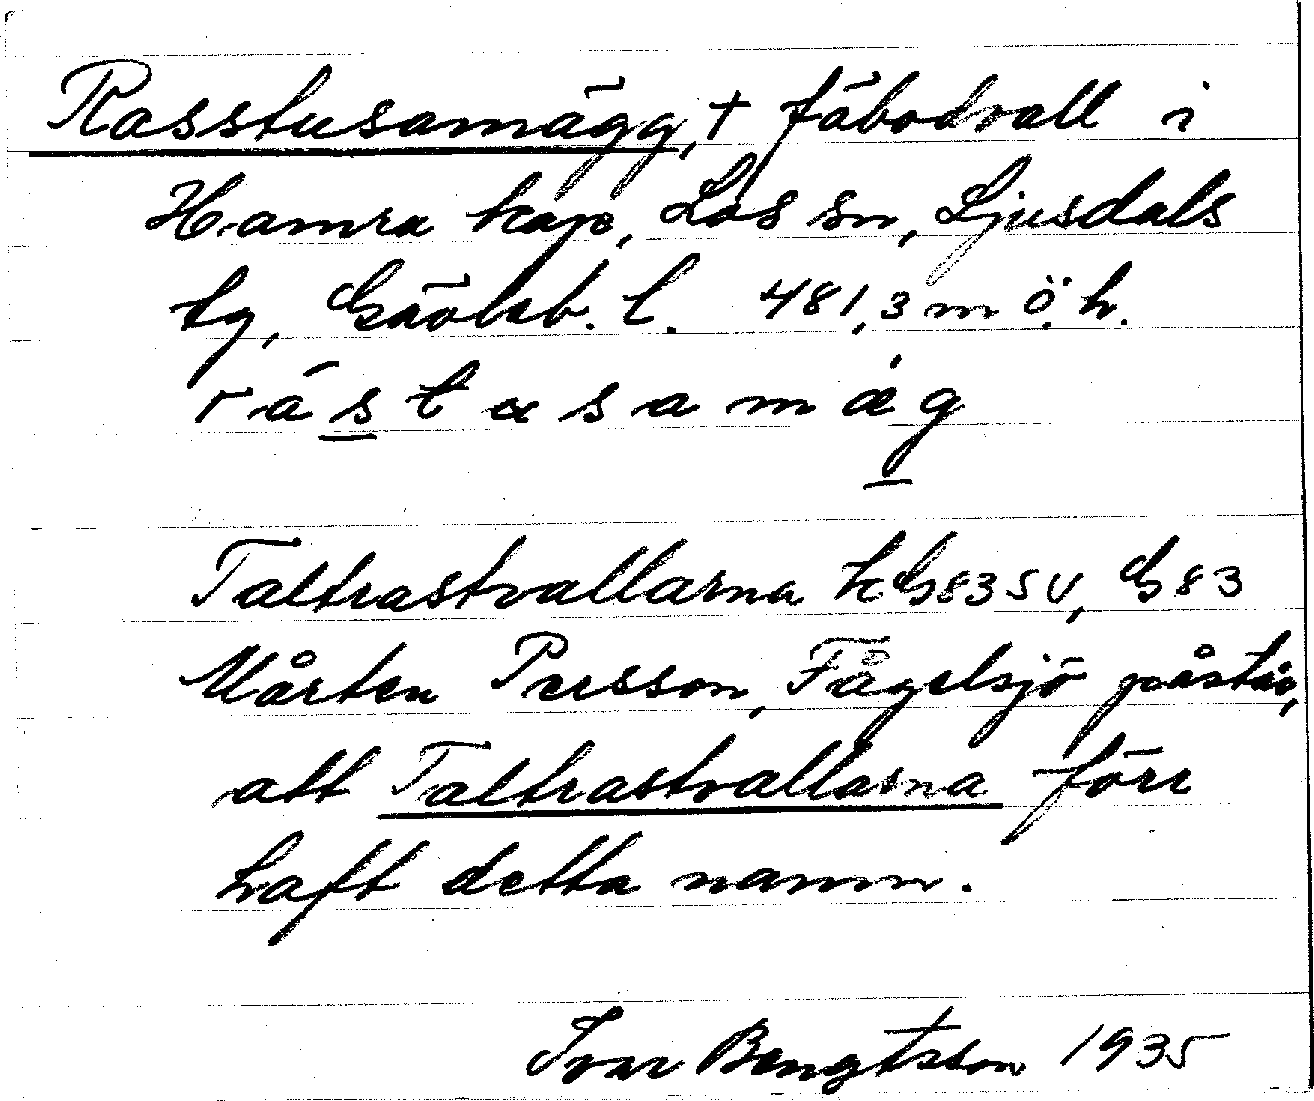 Rosstusamägg, † fäbodvall i
Hamra kap, Los sn, Ljusdals
tg, Gävleb. l. 481,3 m ö. h.
r å s t α s a m æ g
Taltrastvallarna kG83SV, G83
Mårten Persson, Fågelsjö påstår,
att Taltrastvallarna förr
haft detta namn.
Ivar Bengtsson 1935